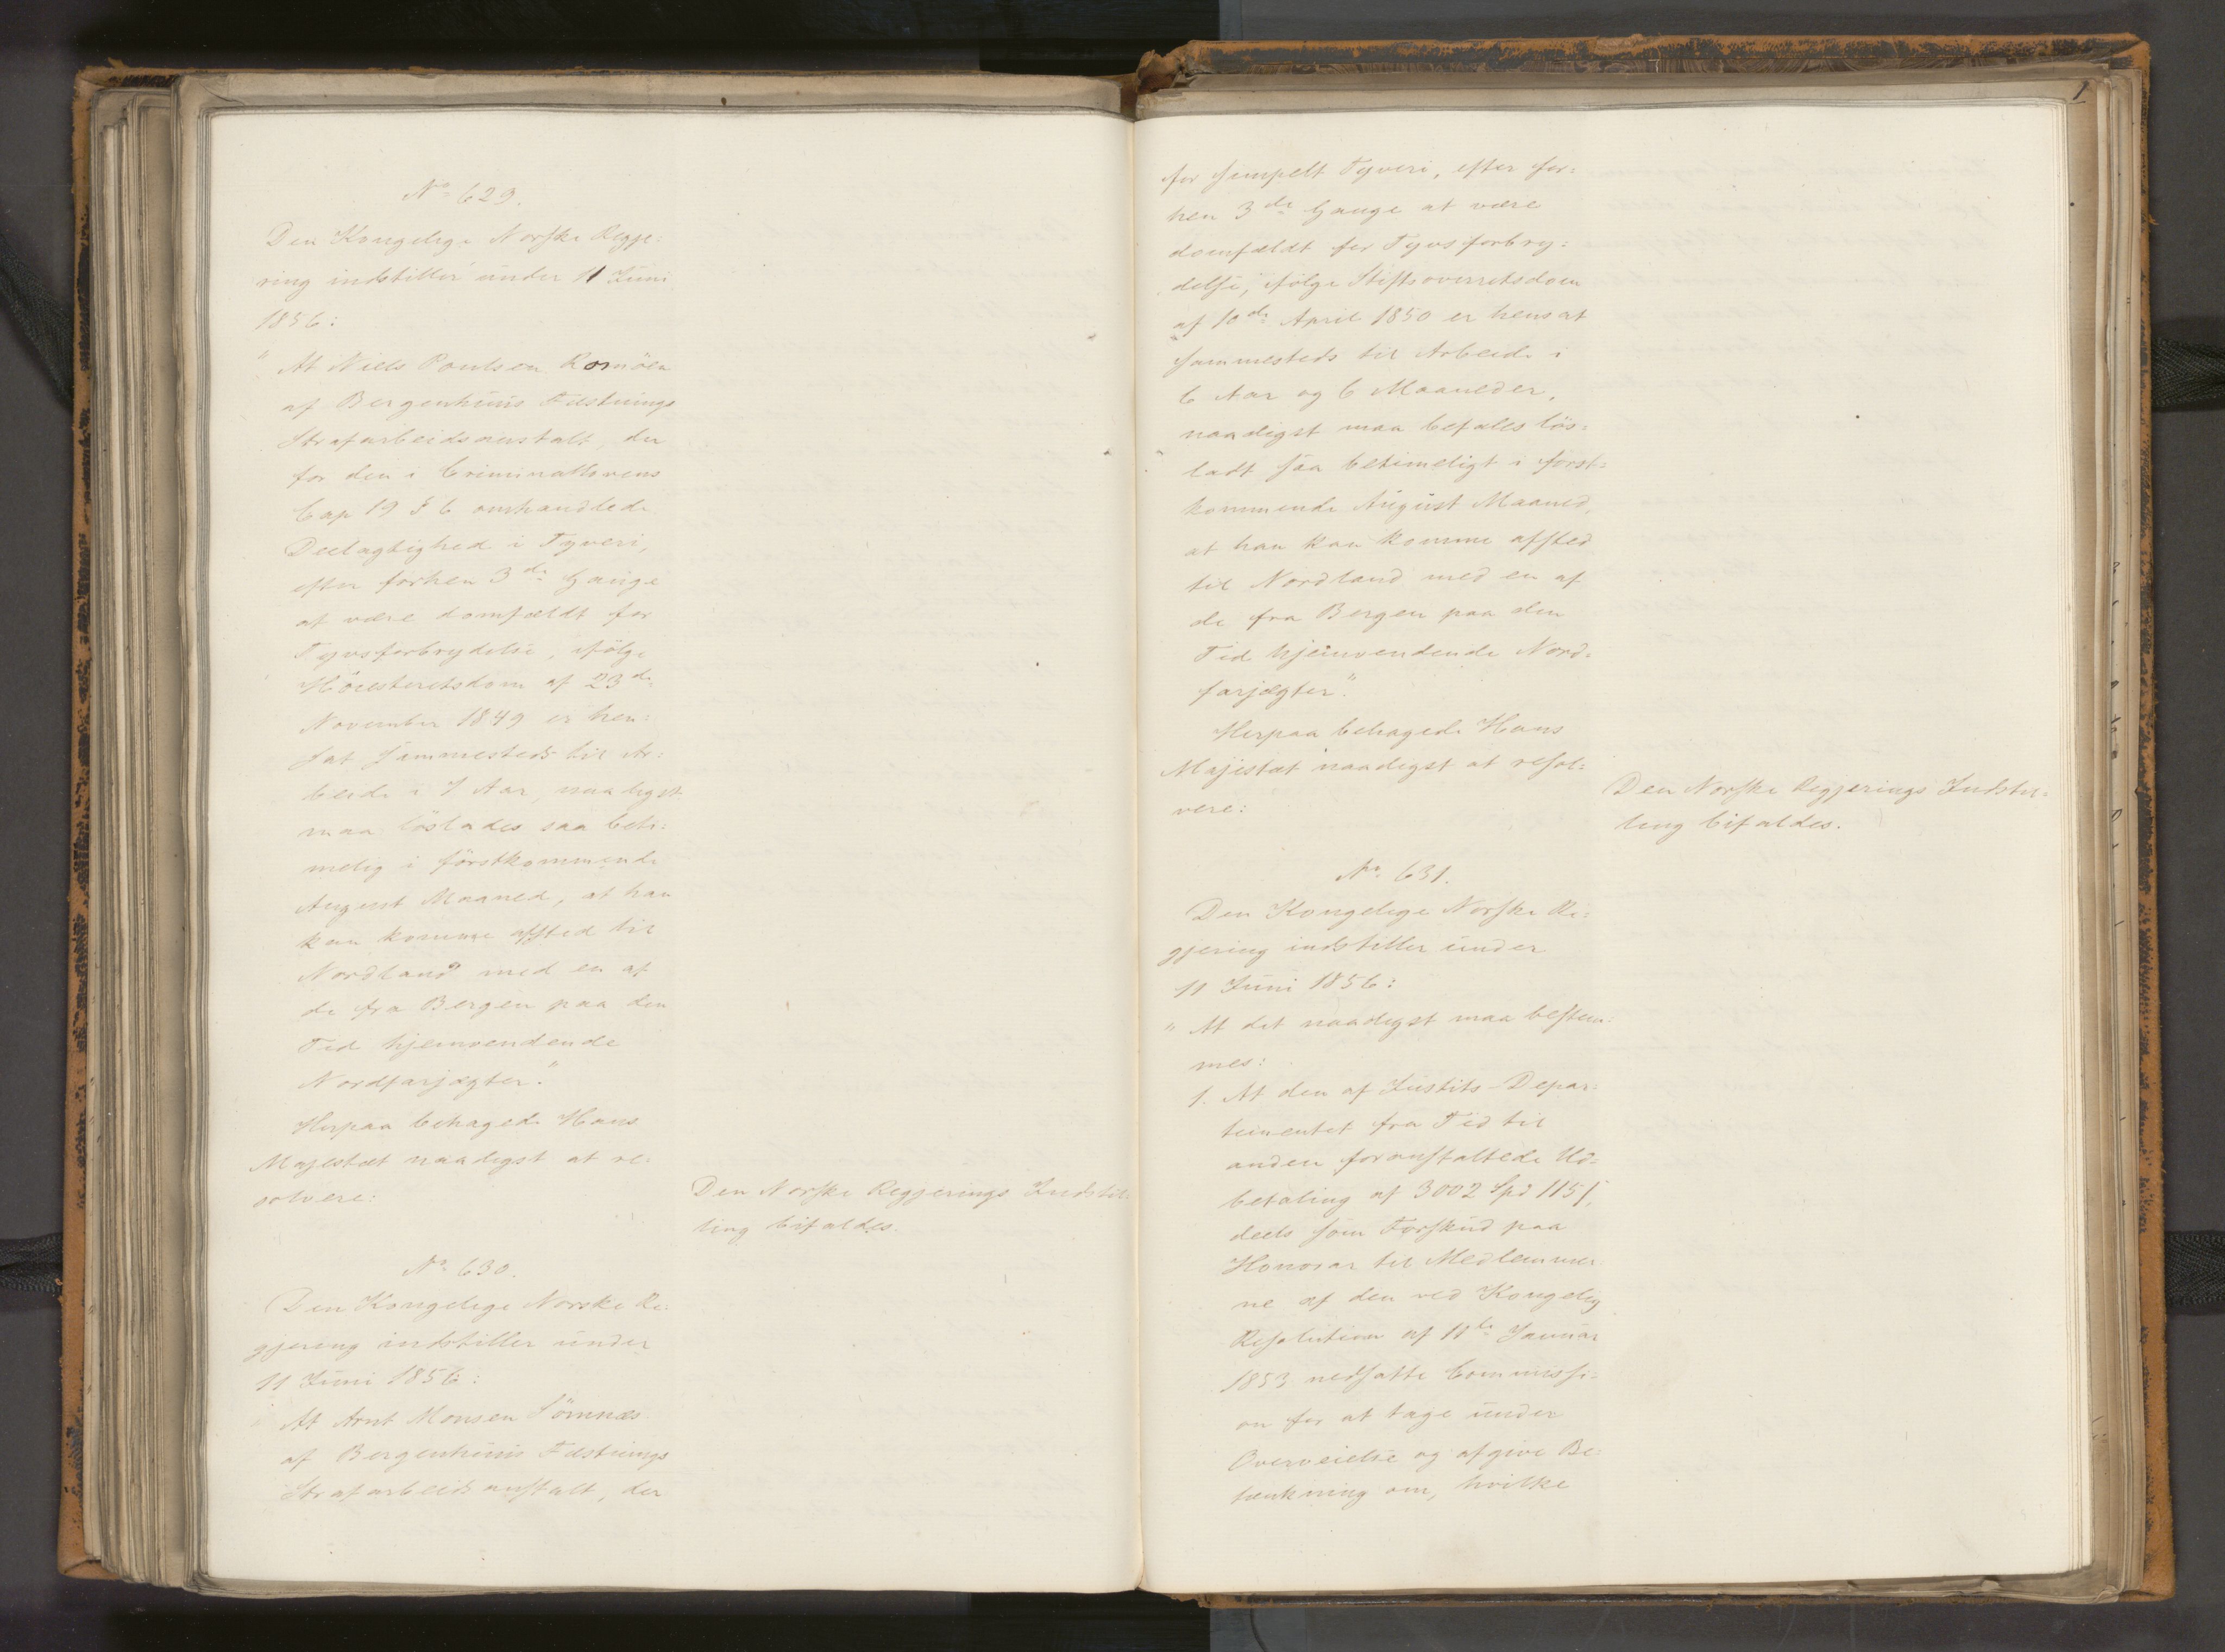 No 629.
Den Kongelige Norske Regje:
ring indstiller under 11 Juni
1856:
" At Niels Poulsen Romöen
af Bergenhuus Fæstnings
Strafarbeidsanstalt, der
for den i Criminallovens
Cap 19 § 6 omhandlede
Deelagtighed i Tyveri,
efter forhen 3de Gange
at være domfældt for
Tyvsforbrydelse, ifölge
Höiesteretsdom af 23de
November 1849 er hen:
sat sammesteds til Ar:
beide i 7 Aar, naadigst
maa löslades saa beti:
melig i förstkommende
August Maaned, at han
kan komme afsted til
Nordland med en af
de fra Bergen paa den
Tid hjemvendende
Nordfarjægter."
Herpaa behagede Hans
Majestæt naadigst at re:
solvere:
Den Norske Regjerings Indstil:
ling bifaldes.
No 630.
Den Kongelige Norske Re:
gjering indstiller under
11 Juni 1856:
" At Arnt Monsen Sömnæs
af Bergenhuus Fæstnings
Strafarbeidsanstalt, der
1
for simpelt Tyveri, efter for:
hen 3de Gange at være
domfældt for Tyvsforbry:
delse, ifölge Stiftsoverretsdom
af 10de April 1850 er hensat
sammesteds til Arbeide i
6 Aar og 6 Maaneder,
naadigst maa befales lös:
ladt saa betimeligt i först:
kommende August Maaned,
at han kan komme afsted
til Nordland med en af
de fra Bergen paa den
Tid hjemvendende Nord:
farjægter."
Herpaa behagede Hans
Majestæt naadigst at resol:
vere:
Den Norske Regjerings Indstil:
ling bifaldes.
No 631.
Den Kongelige Norske Re:
gjering indstiller under
11 Juni 1856:
" At det naadigst maa bestem:
mes:
1. At den af Justits-Depar:
tementet fra Tid til
anden foranstaltede Ud:
betaling af 3002 Spd 115 s,
deels som Forskud paa
Honorar til Medlemmer:
ne af den ved Kongelig
Resolution af 11te Januar
1853 nedsatte Commissi:
on for at tage under
Overveielse og afgive Be:
tænkning om, hvilke